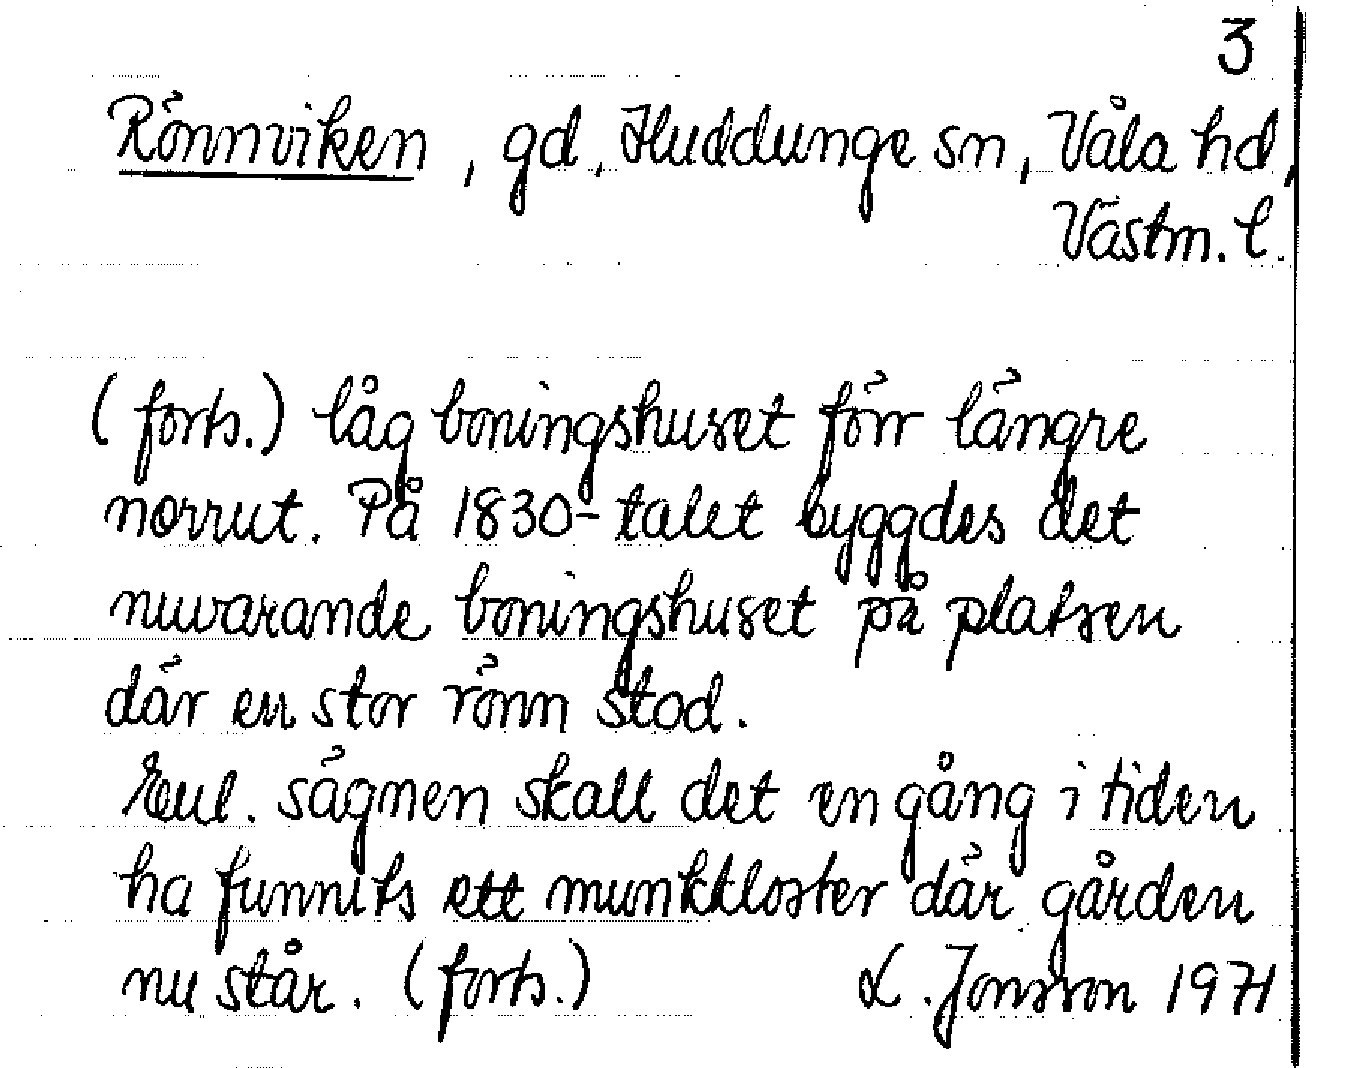 3
Rönnviken, gd, Huddunge sn, Våla hd,
Västm. l.
(forts.) låg boningshuset förr längre
norrut. På 1830-talet byggdes det
nuvarande boningshuset på platsen
där en stor rönn stod.
Enl. sägnen skall det en gång i tiden
ha funnits ett munkkloster där gården
nu står. (forts.) L. Jonsson 1971